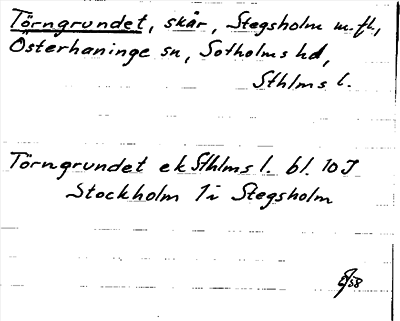 Törngrundet, skär, Stegsholm m.fl.,
Österhaninge sn, Sotholms hd,
Sthlms l.
Törngrundet ek Sthlms l. bl. 10J
Stockholm 1i Stegsholm
58